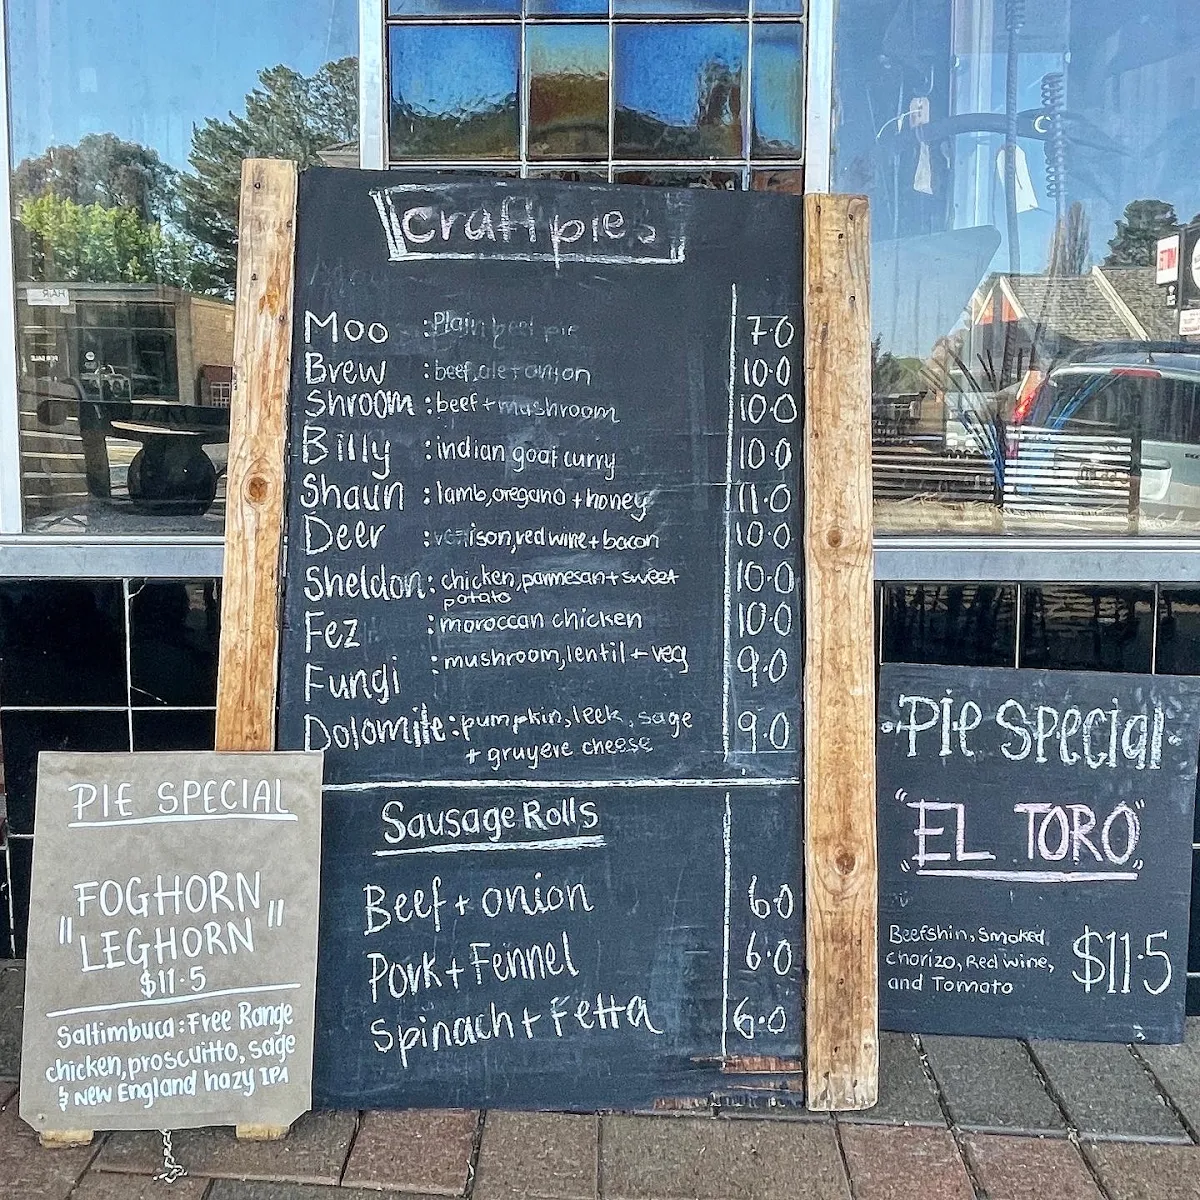 craft pies
Moo : Plain beef pie 7.0
Brew : beef, ale + onion 10.0
Shroom : beef + mushroom 10.0
Billy : indian goat curry 10.0
Shaun : lamb, oregano + honey 11.0
Deer : venison, red wine + bacon 10.0
Sheldon : chicken, parmesan + sweet 10.0
potato
Fez : moroccan chicken 10.0
Fungi : mushroom, lentil + veg 9.0
Dolomite : pumpkin, leek, sage 9.0
+ gruyere cheese
Sausage Rolls
Beef + onion 6.0
Pork + Fennel 6.0
Spinach + Fetta 6.0
PIE SPECIAL
"FOGHORN
LEGHORN"
$11.5
Saltimbuca : Free Range
chicken, proscuitto, sage
& New England hazy IPA
Pie Special
"EL TORO"
Beefshin, Smoked
chorizo, Red wine,
and Tomato
$11.5